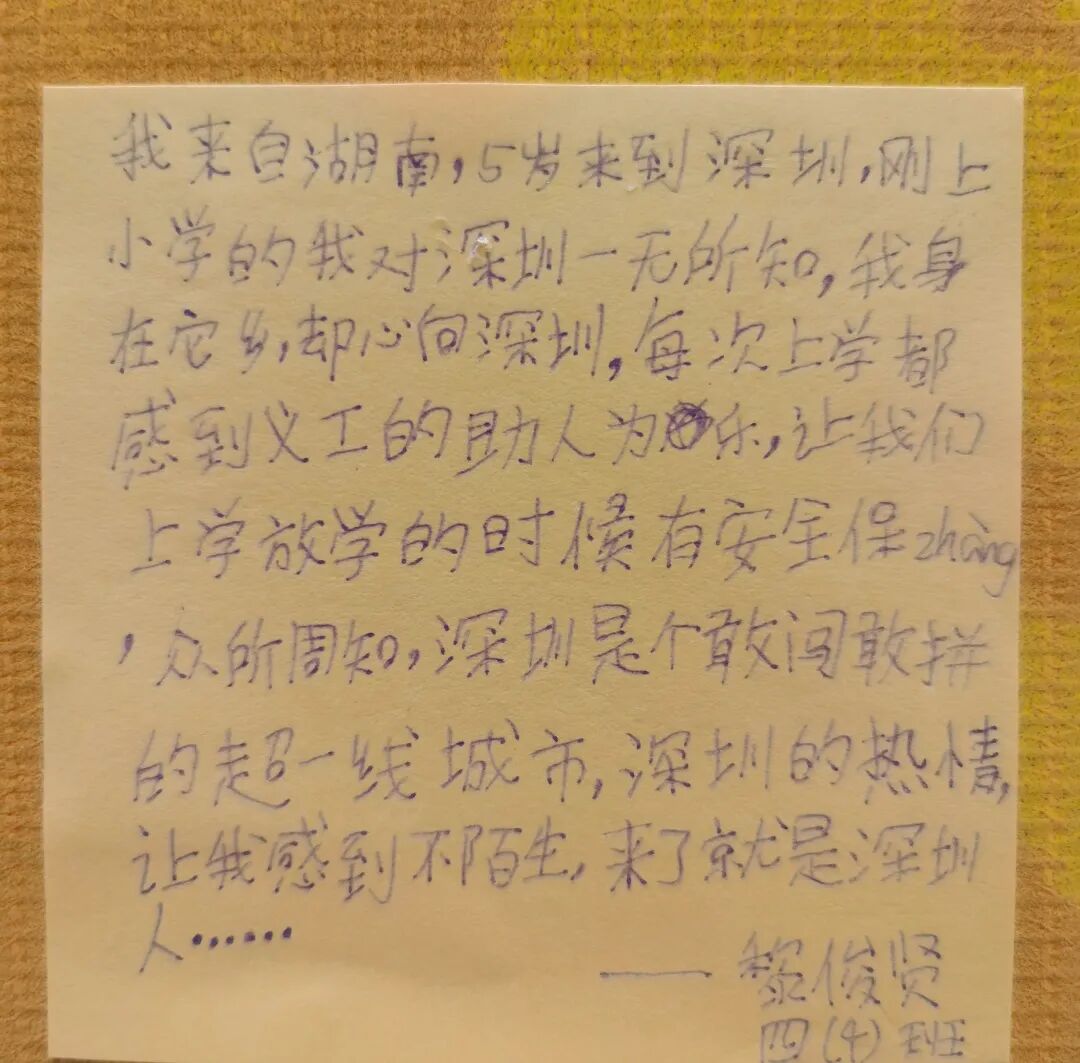 我来自湖南,5岁来到深圳,刚上
小学的我对深圳一无所知,我身
在它乡,却心向深圳,每次上学都
感到义工的助人为乐,让我们
上学放学的时候有安全保zhàng
,众所周知,深圳是个敢闯敢拼
的超一线城市,深圳的热情,
让我感到不陌生,来了就是深圳
人······
——黎俊贤
四(4)班